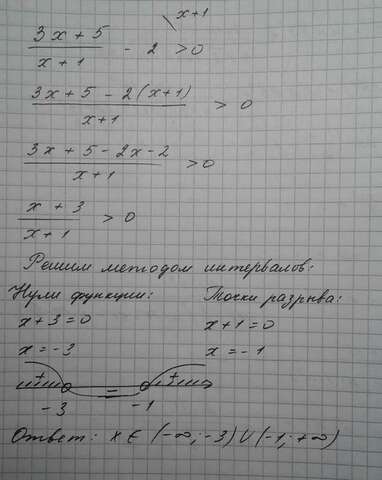 x+1
(3x+5)/(x+1) - 2 > 0
(3x+5-2(x+1))/(x+1) > 0
(3x+5-2x-2)/(x+1) > 0
(x+3)/(x+1) > 0
Решим методом интервалов:
Нули функции: Точки разрыва:
x+3=0 x+1=0
x=-3 x=-1
+ − +
-3 -1
Ответ: x∈(-∞;-3)∪(-1;+∞)